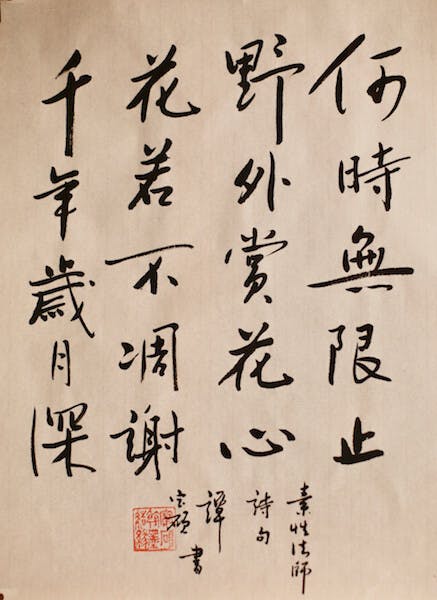 何時無限止
野外賞花心
花若不凋謝
千年歲月深
素性法師
詩句
譚
書